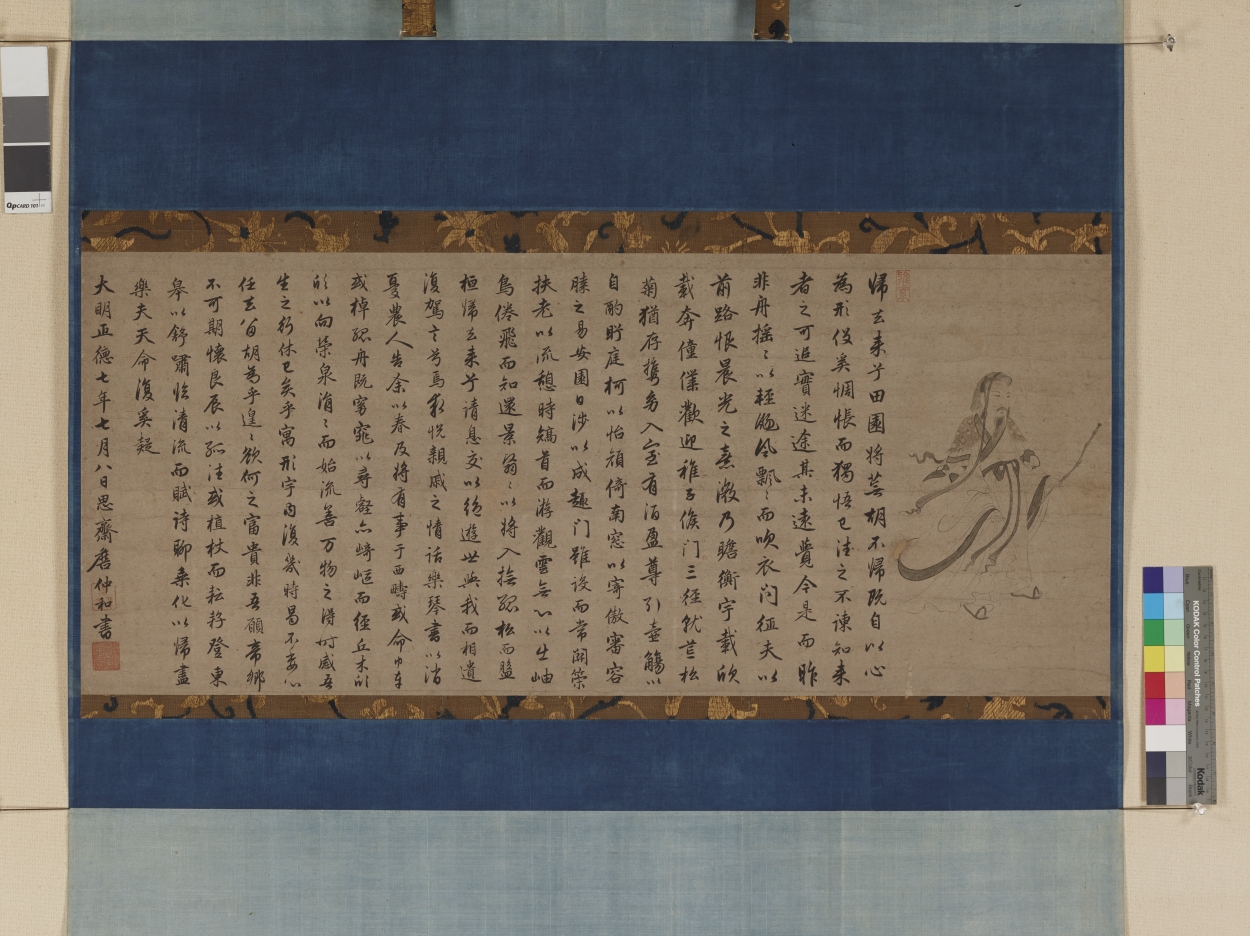 歸去来兮田園將蕪胡不歸既自以心
為形役奚惆悵而獨悟已往之不諫知来
者之可追實迷途其未遠覺今是而昨
非舟揺〻以輕颺風飄〻而吹衣问征夫以
前路恨晨光之熹微乃瞻衡宇載欣
載奔僮僕歡迎稚子候门三徑就荒松
菊猶存攜幼入室有酒盈尊引壺觴以
自酌眄庭柯以怡顔倚南窓以寄傲審容
膝之易安園日涉以成趣门雖設而常関策
扶老以流憩時矯首而游觀雲無心以出岫
鳥倦飛而知還景翳〻以將入撫孤松而盤
桓歸去来兮请息交以絶遊世與我而相遺
復駕言兮焉求悦親戚之情话樂琴書以消
憂農人告余以春及將有事于西疇或命巾車
或棹孤舟既窈窕以尋壑亦崎嶇而徑丘木欣
欣以向榮泉涓〻而始流善万物之得時感吾
生之行休已矣乎寓形宇内復幾時曷不委心
任去留胡為乎遑〻欲何之富貴非吾願帝鄉
不可期懷良辰以孤往或植杖而耘耔登東
皋以舒嘯臨清流而賦詩聊乗化以歸盡
樂夫天命復奚疑
大明正德七年七月八日思齋詹仲和書
QpCARD 101
KODAK Color Control Patches
Kodak